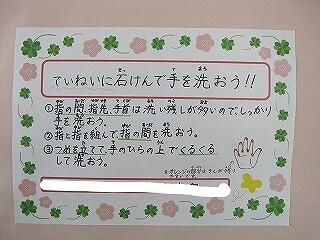 ていねいに石けんで手を洗おう!!
①指の間、指先、手首は洗い残しが多いので、しっかり
手を洗おう。
②指と指を組んで指の間を洗おう。
③つめを立てて、手のひらの上でくるくる
して洗おう。
※オレンジの部分はきんが残り
やすいです。